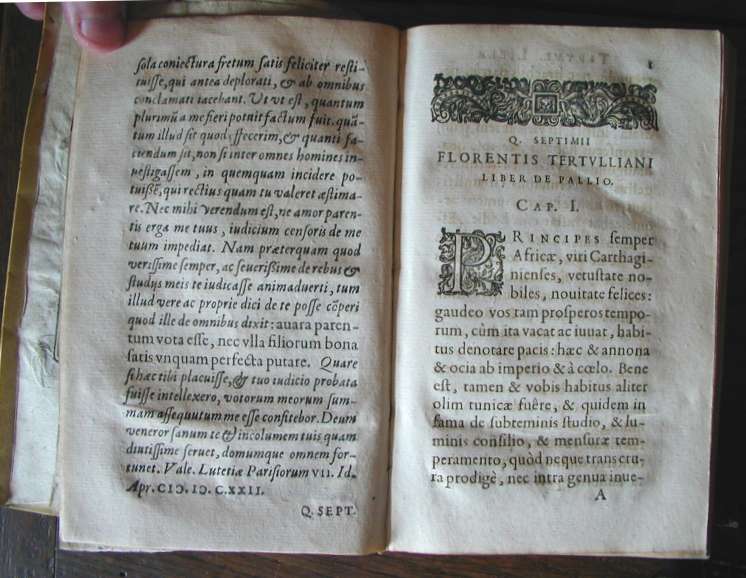 sola coniectura fretum satis feliciter resti-
tuisse, qui antea deplorati, & ab omnibus
conclamati iacebant. Ut ut est, quantum
plurimũ a me fieri potuit factum fuit. quã-
tum illud sit quod effecerim, & quanti fa-
ciendum sit, non si inter omnes homines in-
uestigassem, in quemquam incidere po-
tuissẽ, qui rectius quam tu valeret æstima-
re. Nec mihi verendum est, ne amor paren-
tis erga me tuus, iudicium censoris de me
tuum impediat. Nam præterquam quod
verissime semper, ac seuerissime de rebus &
studijs meis te iudicasse animaduerti, tum
illud vere ac proprie dici de te posse cõperi
quod ille de omnibus dixit: auara paren-
tum vota esse, nec vlla filiorum bona
satis vnquam perfecta putare. Quare
si hæc tibi placuisse, & tuo iudicio probata
fuisse intellexero, votorum meorum sum-
mam assequutum me esse confitebor. Deum
veneror sanum te & incolumem tuis quam
diutissime seruet, domumque omnem for-
tunet. Vale. Lutetiæ Parisiorum VII. Id.
Apr. CIↃ. IↃ. C.XXII.
Q. SEPT.
1
Q. SEPTIMII
FLORENTIS TERTVLLIANI
LIBER DE PALLIO.
CAP. I.
PRINCIPES semper
Africæ, viri Carthagi-
nienses, vetustate no-
biles, nouitate felices:
gaudeo vos tam prosperos tempo-
rum, cùm ita vacat ac iuuat, habi-
tus denotare pacis: hæc & annona
& ocia ab imperio & à cœlo. Bene
est, tamen & vobis habitus aliter
olim tunicæ fuêre, & quidem in
fama de subteminis studio, & lu-
minis consilio, & mensuræ tem-
peramento, quòd neque trans cru-
ra prodigè, nec intra genua inue-
A